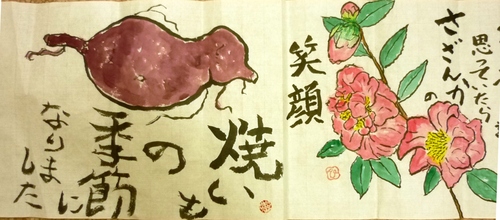 思っていたら、
さざんかの
笑顔
焼いも
の
季節に
なりました